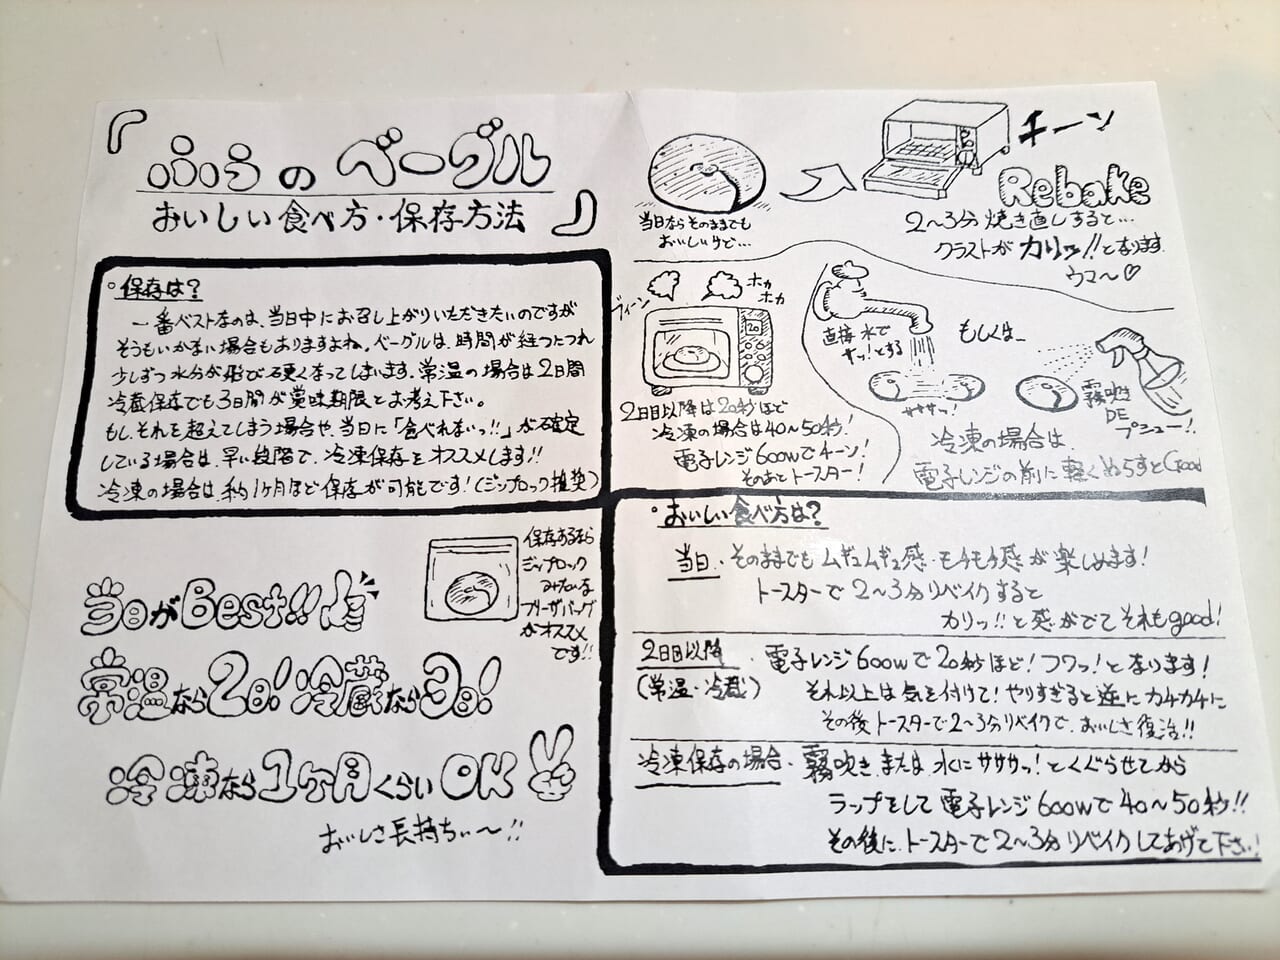 『ふうのベーグル
おいしい食べ方・保存方法』
保存は?
一番ベストなのは、当日中にお召し上がりいただきたいのですが
そうもいかない場合もありますよね。ベーグルは、時間が経つにつれ
少しずつ水分が飛び硬くなってしまいます。常温の場合は2日間
冷蔵保存でも3日間が賞味期限とお考え下さい。
もし、それを超えてしまう場合や、当日に「食べれないっ!!」が確定
している場合は、早い段階で、冷凍保存をオススメします!!
冷凍の場合は、約1ヶ月ほど保存が可能です!(ジップロック推奨)
当日がBest!!
常温なら2日!冷蔵なら3日!
冷凍なら1ヶ月くらいOK
おいしさ長持ちぃ〜!!
保存するなら
ジップロック
みたいな
フリーザーバッグ
がオススメ
です!!
当日ならそのままでも
おいしいけど…
チーン
Rebake
2〜3分焼き直しすると…
クラストがカリッ!!となります。
ウマ〜♡
ブイーン
ホカ
ホカ
20
2日目以降は20秒ほど
冷凍の場合は40〜50秒!
電子レンジ600wでチーン!
そのあとトースター!
直接水で
サッ!とする
ササッ!
もしくは
霧吹き
DE
プシュー!!
冷凍の場合は
電子レンジの前に軽くぬらすとGood
おいしい食べ方は?
当日・そのままでもムギュムギュ感・モチモチ感が楽しめます!
トースターで2〜3分リベイクすると
カリッ!!と感がでてそれもgood!
2日目以降・電子レンジ600wで20秒ほど!フワッ!となります!
(常温・冷蔵)それ以上は気を付けて!やりすぎると逆にカチカチに
その後トースターで2〜3分リベイクで、おいしさ復活!!
冷凍保存の場合・霧吹き、または、水にサササッ!とくぐらせてから
ラップをして電子レンジ600wで40〜50秒!!
その後に、トースターで2〜3分リベイクしてあげて下さい!